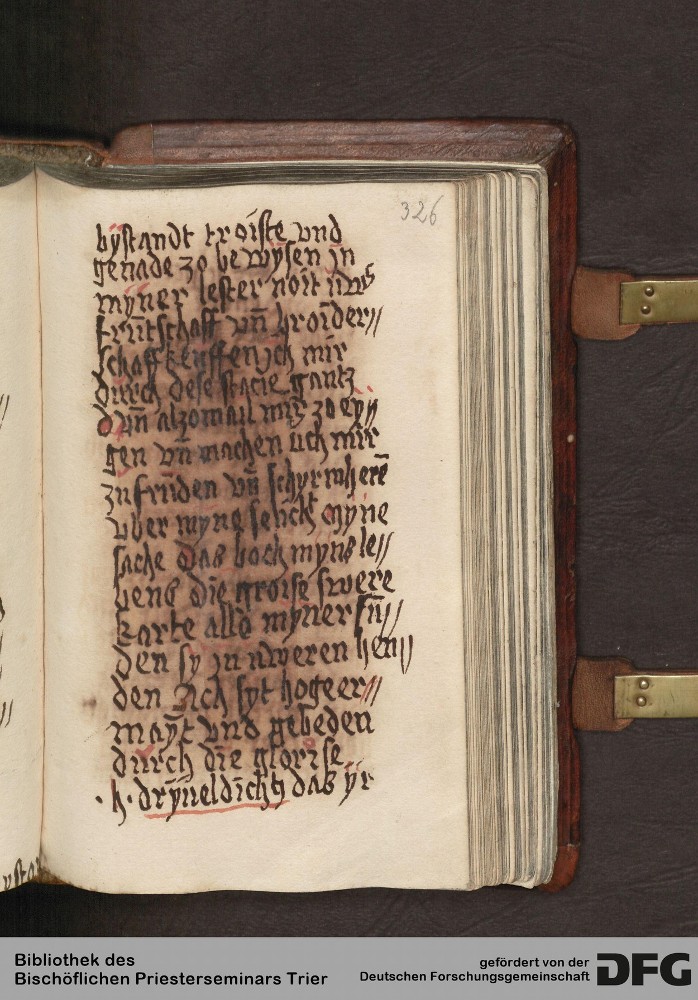 326
bÿstandt troiste vnd
genade zo bewÿsen in
mÿner lester noit uws
fruntschaff vn̄ broider//
schaff keuffen ich mir
durch dese stacie gantz
vn̄ alzomail mir zo eÿ//
gen vn̄ machen uch mir
zu frunden vn̄ schyrmherē
vber myne selicht myne
sache das boch myns le//
bens die groise swere
karte alle mÿner sū//
den sy in uweren hen//
den Ach syt hogeer//
maÿt vnd gebeden
durch die glorise
·h· drÿueldich das ÿr
Bibliothek des
Bischöflichen Priesterseminars Trier
gefördert von der
Deutschen Forschungsgemeinschaft
DFG